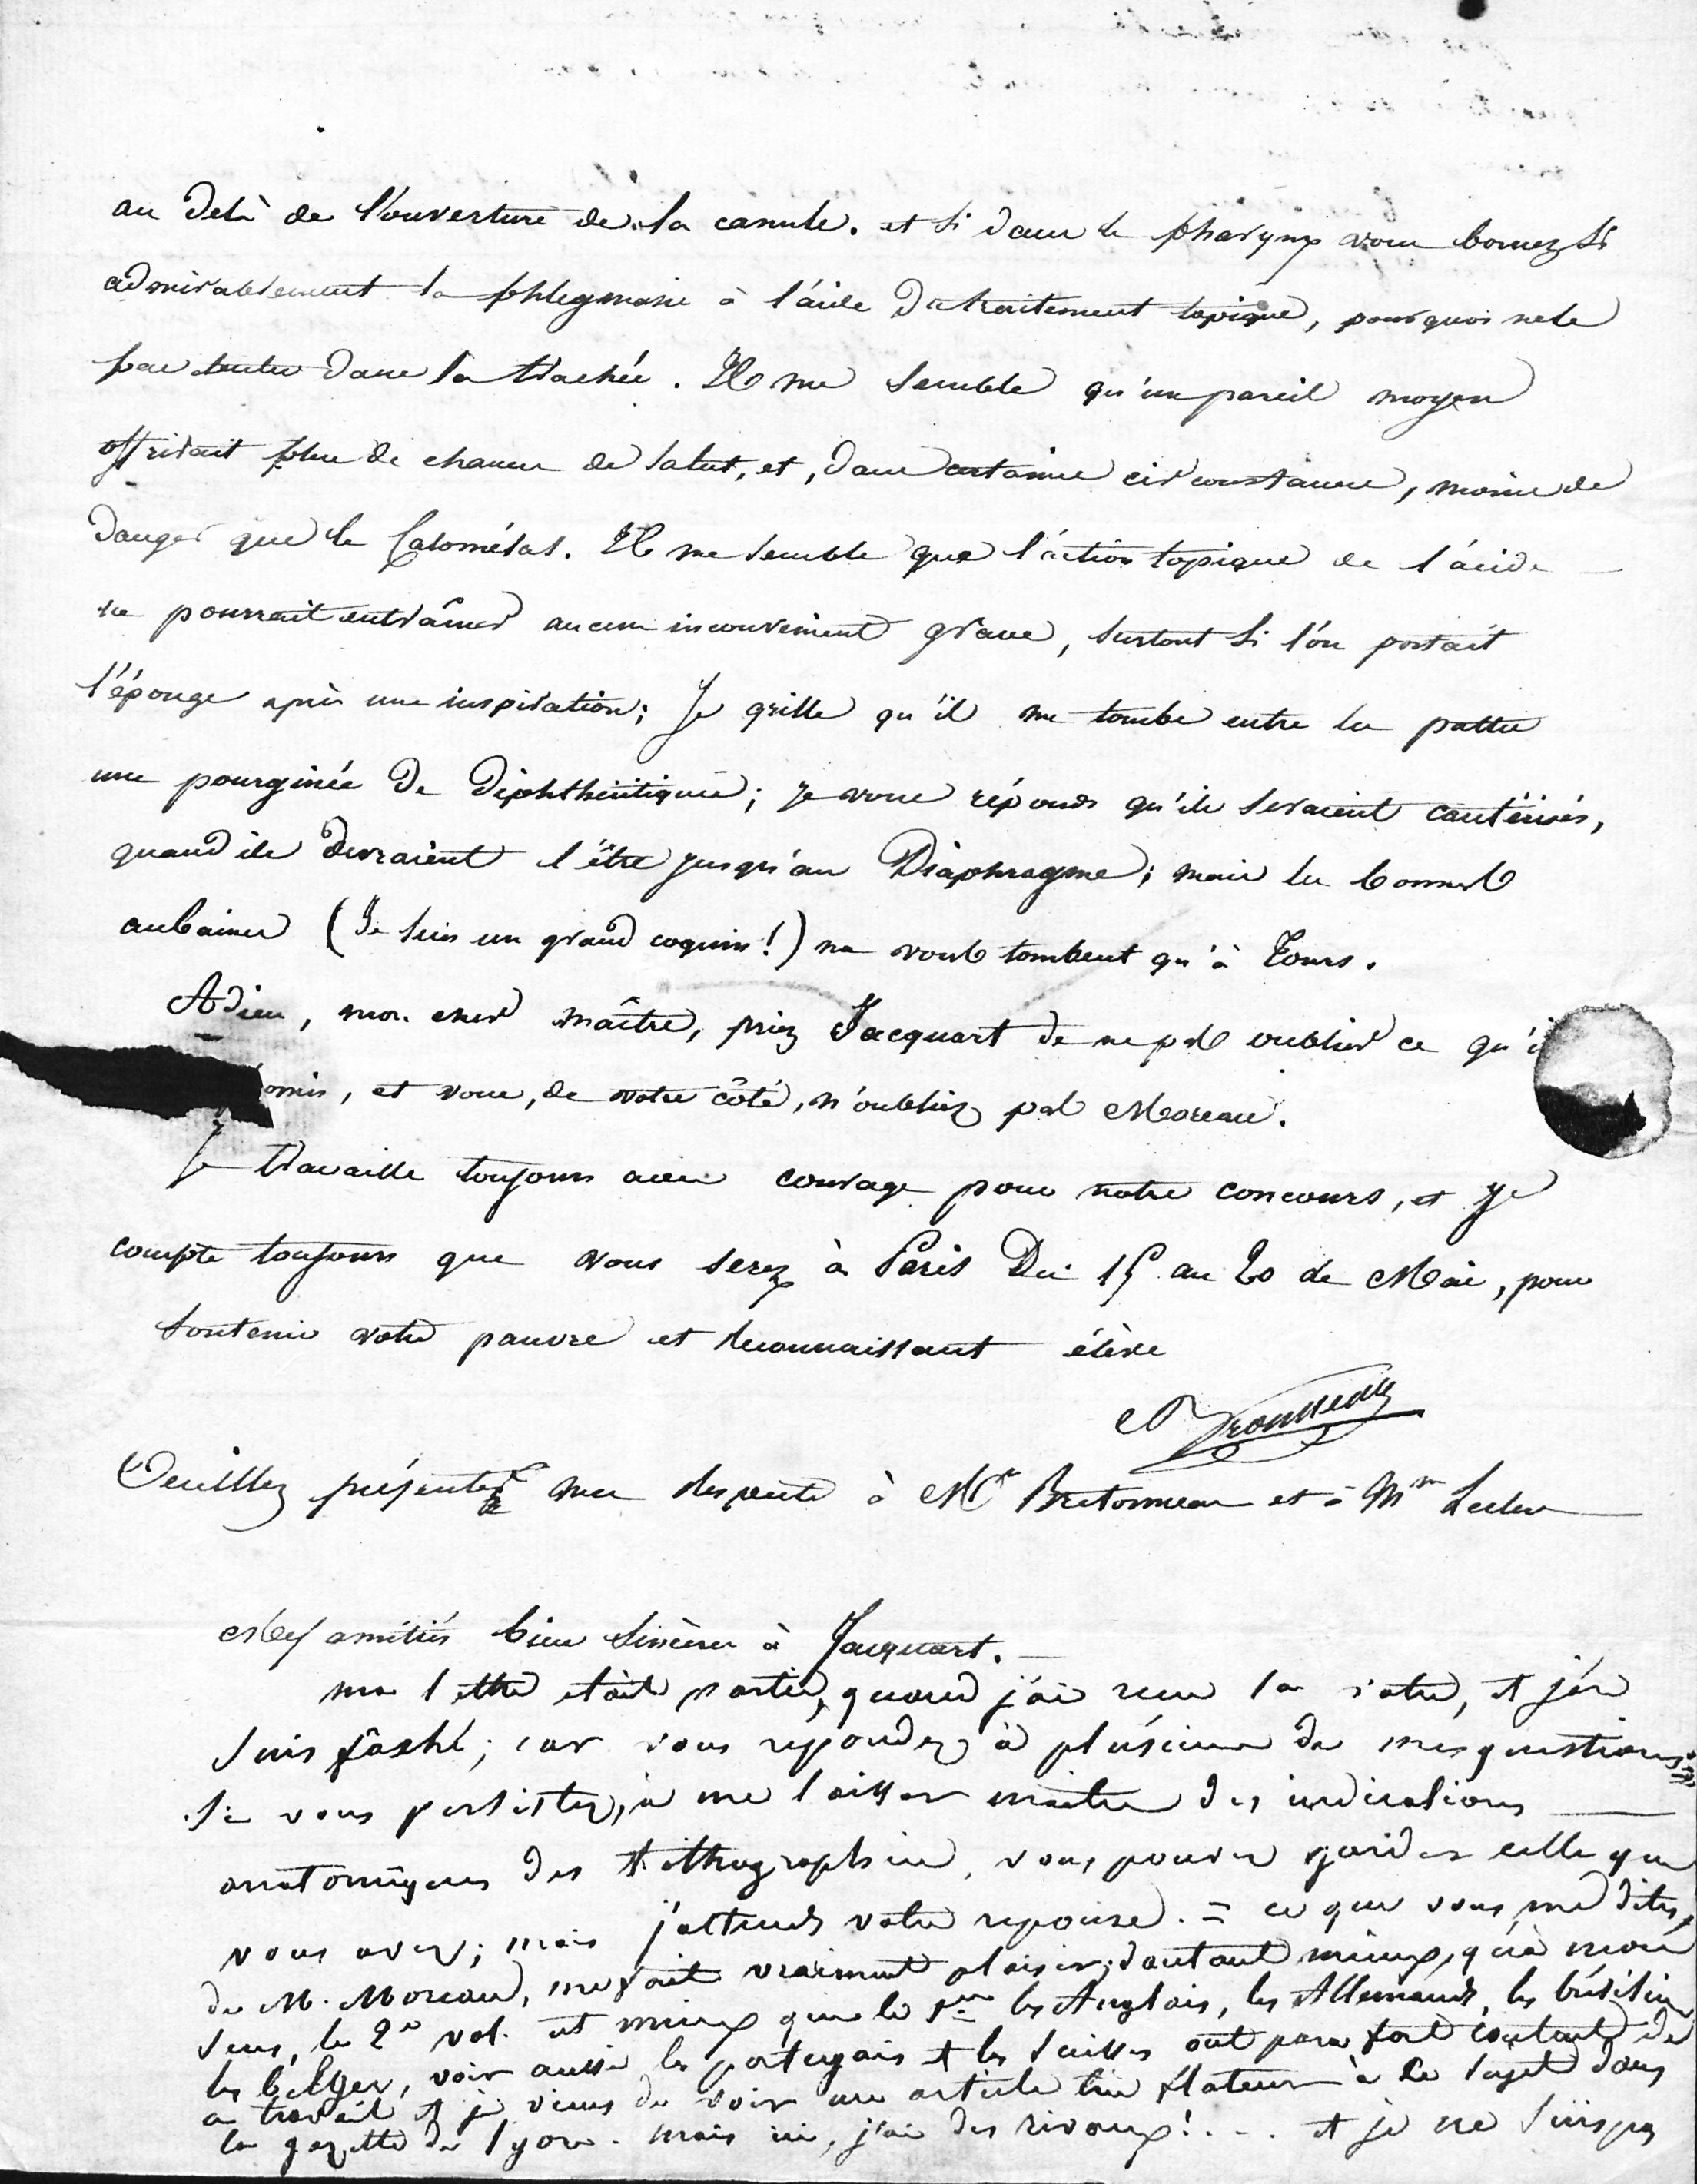 au delà de l'ouverture de la canule. et si dans le pharynx vous bornez si
admirablement la phlegmasie à l'aide du traitement topique, pourquoi ne le
pas tenter dans la trachée. Il me semble qu'un pareil moyen
offrirait plus de chances de salut, et, dans certaines circonstances, moins de
danger que le Calomélas. Il me semble que l'action topique de l'acide
ne pourrait entraîner aucun inconvénient grave, surtout si l'on portait
l'éponge après une inspiration; Je grille qu'il me tombe entre les pattes
une pourginée de diphthéritiques; je vous réponds qu'ils seraient cautérisés,
quand ils devraient l'être jusqu'au Diaphragme; mais les bonnes
aubaines (Je suis un grand coquin!) ne vous tombent qu'à Tours.
Adieu, mon cher maître, priez Jacquart de ne pas oublier ce qu'i
omis, et vous, de votre côté, n'oubliez pas Moreau.
Je travaille toujours avec courage pour notre concours, et je
compte toujours que vous serez à Paris Du 15 au 20 de Mai, pour
soutenir votre pauvre et reconnaissant élève
A Trousseau
Veuillez présenter mes respects à Me Bretonneau et à Mme Leclerc
Mes amitiés bien sincères à Jacquart.
ma lettre etait partie, quand j'ai recu la votre, et j'en
suis fâché; car vous repondez à plusieurs de mes questions
si vous persistez, à me laisser maitre des indications
anatomiques des lithographies, vous pouvez garder celle que
vous avez; mais j'attends votre reponse. = ce que vous me dites,
de M. Moreau, me fait vraiment plaisir; dautant mieux, qu'à mon
sens, le 2e vol. est mieux que le 1er les Anglais, les Allemands, les brésiliens
les belges, voir aussi les portugais et les suisses ont paru fort contents de
ce travail et je viens de voir un article bien flateur à ce sujet dans
la gazette de lyon. mais ici, j'ai des rivaux!... et je ne suis pas